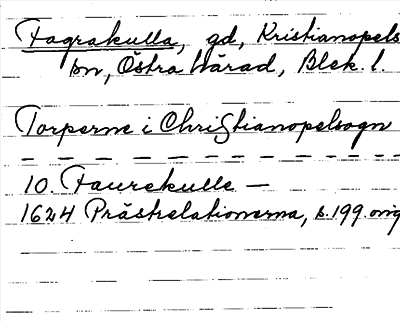 Fagrakulla, gd, Kristianopels
sn, Östra härad, Blek. l.
Torperne i Christianopelsogn
— — — — — — — — — — — —
10. Faurekulle —
1624 Prästrelationerna, s. 199. orig